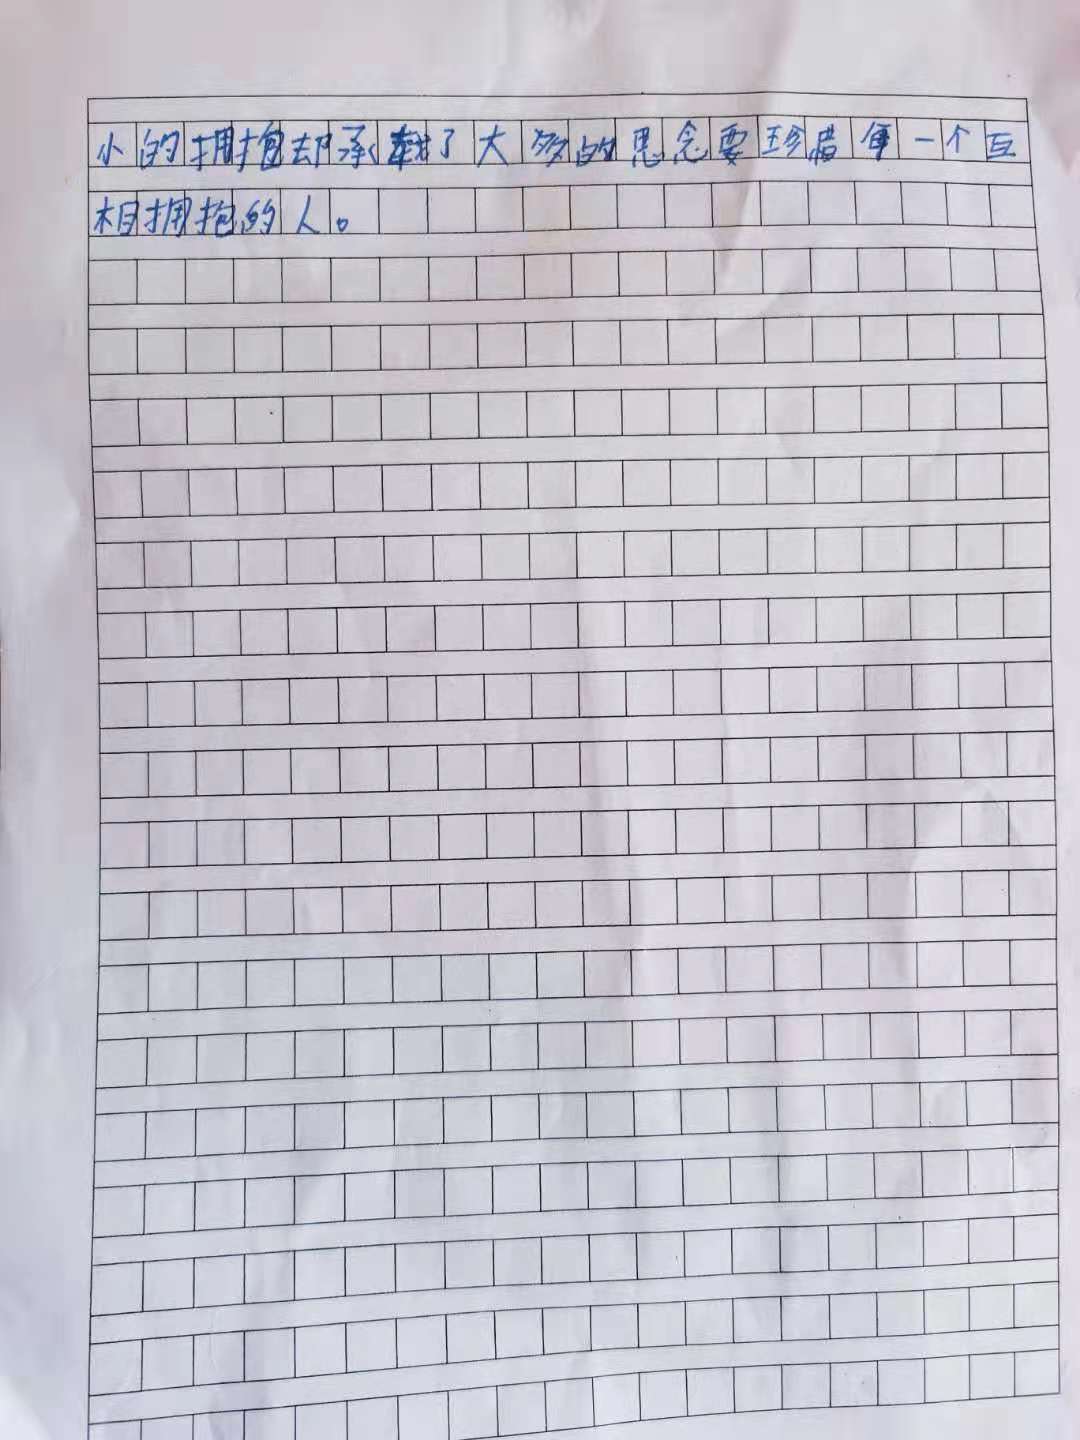 小的拥抱却承载了大多的思念要珍惜每一个互
相拥抱的人。